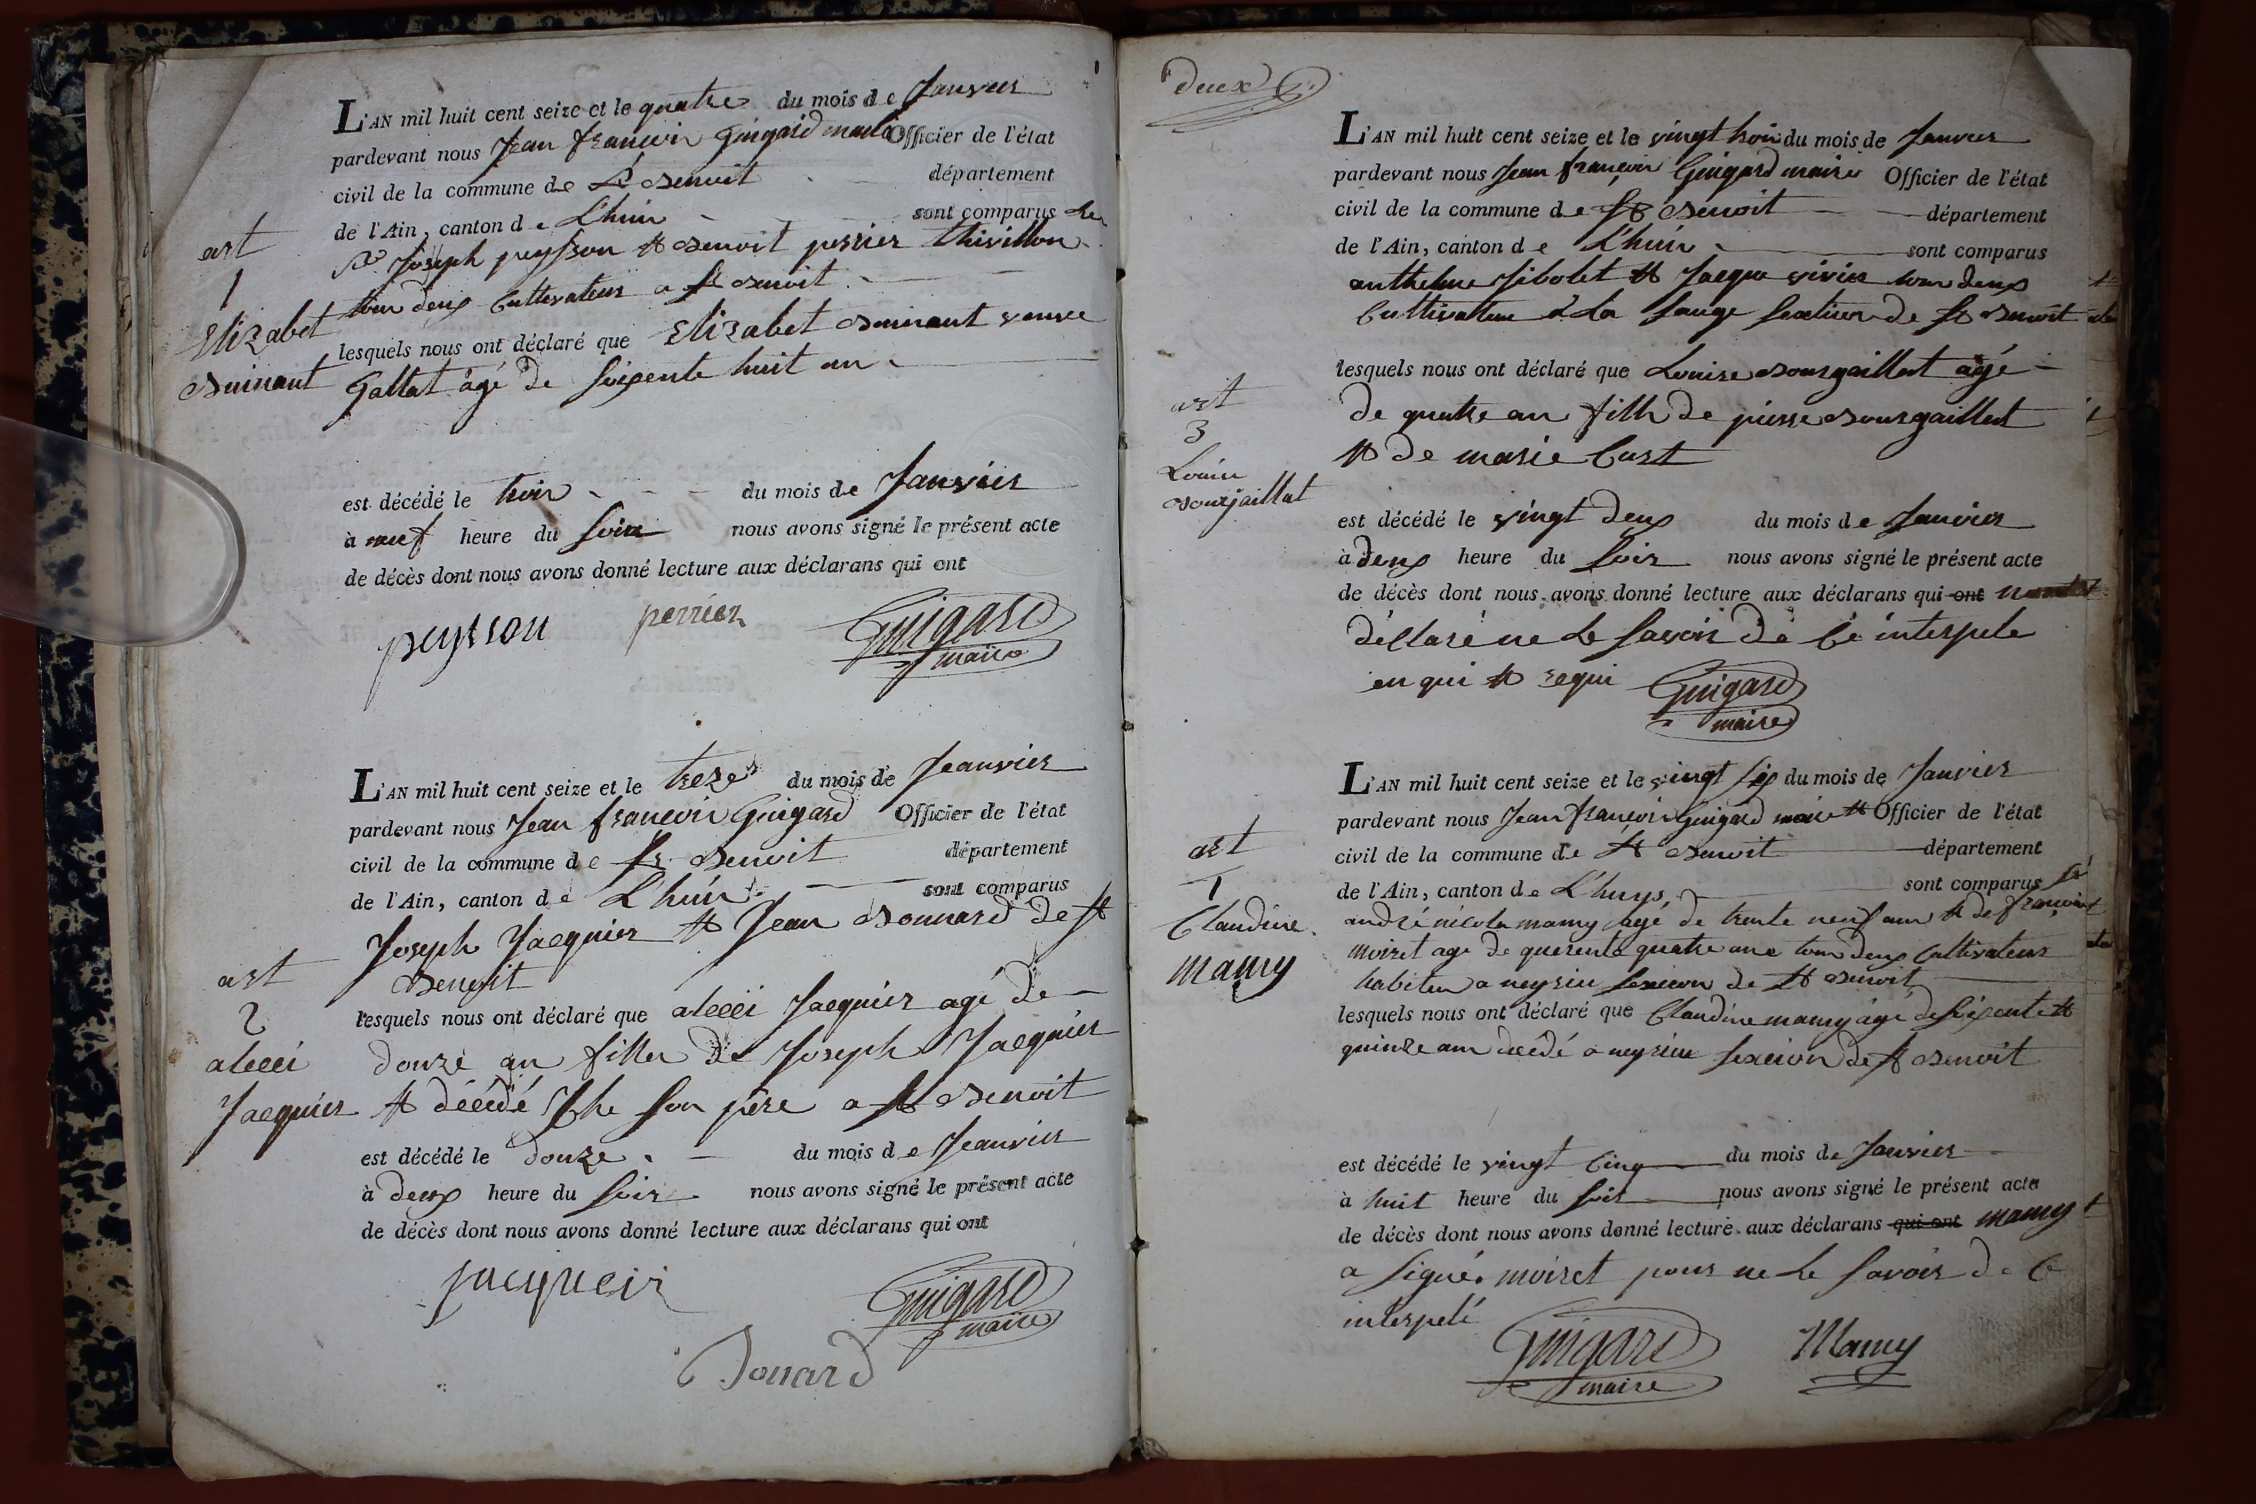 L'AN mil huit cent seize et le quatre du mois de Janvier
pardevant nous Jean françois Guigard maire Officier de l'état
civil de la commune de St Benoit département
de l'Ain, canton de L'huis sont comparus les
Sr Joseph peysson et Benoit perrier thivillon
tous deux Cultivateurs a St Benoit
lesquels nous ont déclaré que Elizabet Buinant veuve
Gallat âgé de soixente huit an
art
1
Elizabet
Buinant
est décédé le trois du mois de Janvier
à neuf heure du soir nous avons signé le présent acte
de décès dont nous avons donné lecture aux déclarans qui ont
peysson perrier Guigard
maire
L'AN mil huit cent seize et le treze du mois de Jeanvier
pardevant nous Jean françois Guigard Officier de l'état
civil de la commune de St Benoit département
de l'Ain, canton de L'huis sont comparus
Joseph Jacquier et Jean Bonnard de St
Benoit
lesquels nous ont déclaré que alexi Jacquier agé de
douze an filler de Joseph Jacquier
et décédé Che son père a St Benoit
art
2
alexi
Jacquier
est décédé le douze du mois de Jeanvier
à deux heure du soir nous avons signé le présent acte
de décès dont nous avons donné lecture aux déclarans qui ont
jacqueir Guigard
maire
Bonard
deux
L'AN mil huit cent seize et le vingt trois du mois de Janvier
pardevant nous Jean françois Guigard maire Officier de l'état
civil de la commune de St Benoit département
de l'Ain, canton de L'huis sont comparus
anthelme Jibolet et Jacque vivier tous deux
Cultivateur à La Sauge section de St Benoit
lesquels nous ont déclaré que Louise Bourgaillat âgé
de quatre an fille de pierre Bourgaillat
et de marie Curt
art
3
Louise
Bourjaillat
est décédé le vingt deux du mois de Janvier
à deux heure du soir nous avons signé le présent acte
de décès dont nous avons donné lecture aux déclarans qui ont
déclaré ne le savoir de ce interpele
en qui et requi Guigard
maire
L'AN mil huit cent seize et le vingt six du mois de Janvier
pardevant nous Jean françois Guigard maire et Officier de l'état
civil de la commune de St Benoit département
de l'Ain, canton de L'huys sont comparus Sr
andré nicola mamy agé de trente neuf ans et de françois
moiret age de querente quatre ans tous deux Cultivateurs
habitens a neyrieu section de St Benoit
lesquels nous ont déclaré que Claudine mamy âgé de soixente et
quinze ans décédé a neyrieu section de St Benoit
art
Claudine
mamy
est décédé le vingt Cinq du mois de Janvier
à huit heure du soir nous avons signé le présent acte
de décès dont nous avons donné lecture aux déclarans qui ont mamy
a signé. moiret pour ne le savoir de ce
interpelé
Guigard Mamy
maire